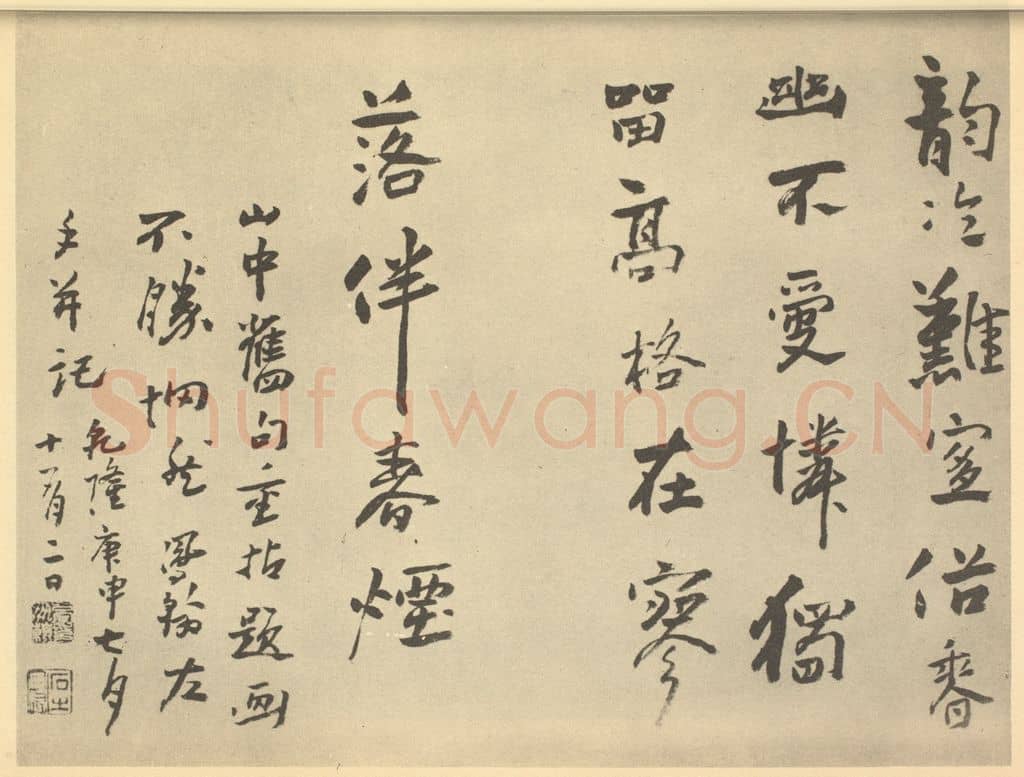 韵冷難宜俗香
幽不愛憐獨
留高格在寥
落伴春煙
山中舊句重拈題画
不勝惘然鳳翰左
手并記
乾隆庚申七月
十有二日
Shufawang.CN